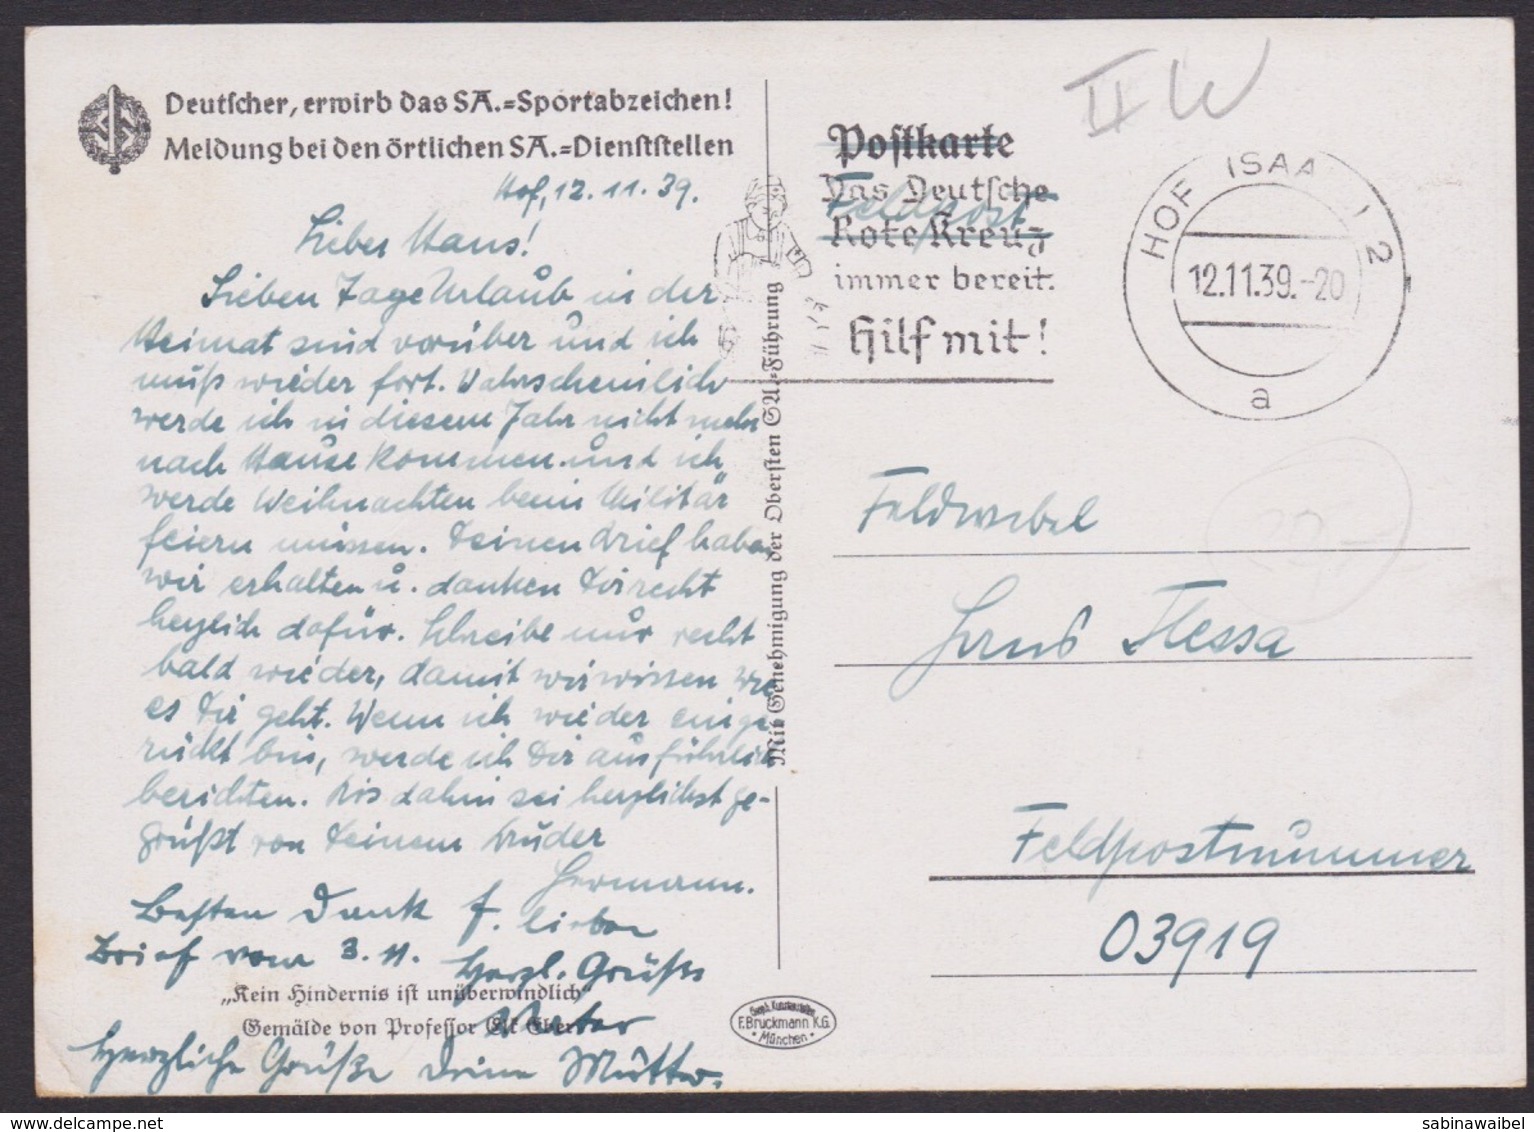 Deutscher, erwirb das SA.=Sportabzeichen!
Meldung bei den örtlichen SA.=Dienststellen
Hof, 12. 11. 39.
Lieber Hans!
Lieben Tage Urlaub in der
Heimat sind vorüber und ich
muß wieder fort. Wahrscheinlich
werde ich in diesem Jahr nicht mehr
nach Hause kommen und ich
werde Weihnachten beim Militär
feiern müssen. Deinen Brief haben
wir erhalten u. danken Dir recht
herzlich dafür. Schreibe nur recht
bald wieder, damit wir wissen wie
es Dir geht. Wenn ich wieder einge-
rückt bin, werde ich Dir ausführlich
berichten. Bis dahin sei herzlichst ge-
grüßt von Deinem Bruder
Hermann.
Besten Dank f. lieben
Brief vom 3. 11. Herzl. Grüße
Vater
„Kein Hindernis ist unüberwindlich"
Gemälde von Professor Elk Eber
Herzliche Grüße Deine Mutter.
Mit Genehmigung der Obersten SA.=Führung
F. Bruckmann K.G.
München
II W
Postkarte
Feldpost
Das Deutsche
Rote Kreuz
immer bereit.
Hilf mit!
HOF (SAALE) 2
12.11.39.-20
a
Feldwebel
Hans Flessa
Feldpostnummer
03919
sabinawaibel